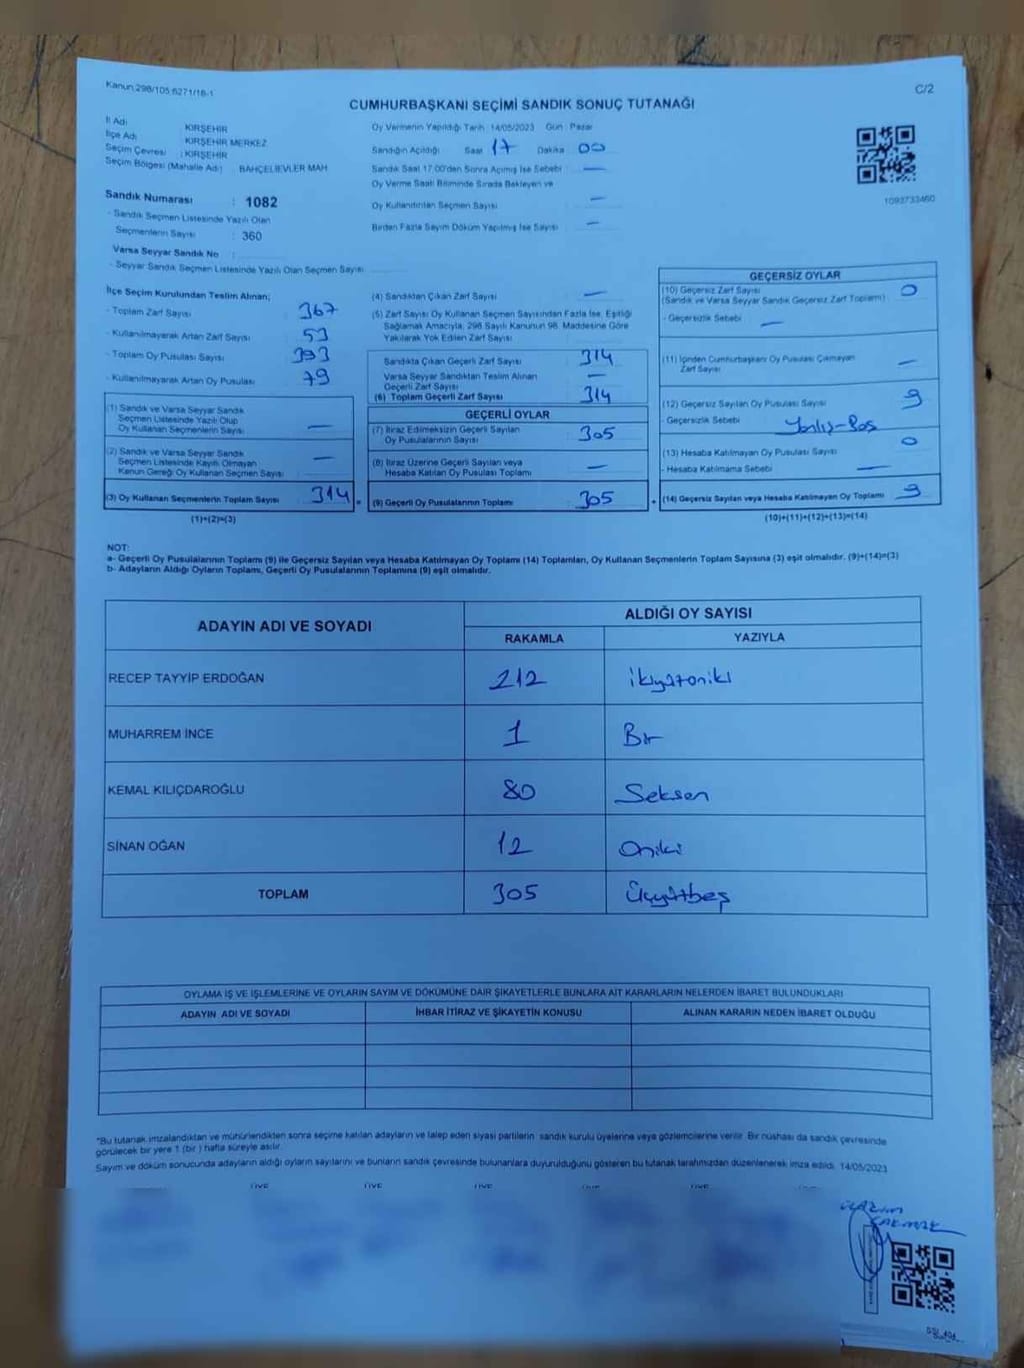 Kanun 298/105 6271/16-1
C/2
CUMHURBAŞKANI SEÇİMİ SANDIK SONUÇ TUTANAĞI
İl Adı KIRŞEHİR
İlçe Adı KIRŞEHİR MERKEZ
Seçim Çevresi : KIRŞEHİR
Seçim Bölgesi (Mahalle Adı) BAHÇELİEVLER MAH
Sandık Numarası : 1082
- Sandık Seçmen Listesinde Yazılı Olan
Seçmenlerin Sayısı : 360
Varsa Seyyar Sandık No :
- Seyyar Sandık Seçmen Listesinde Yazılı Olan Seçmen Sayısı
Oy Vermenin Yapıldığı Tarih : 14/05/2023 Gün : Pazar
Sandığın Açıldığı Saat 17 Dakika 00
Sandık Saat 17.00'den Sonra Açılmış İse Sebebi —
Oy Verme Saati Bitiminde Sırada Bekleyen ve
Oy Kullandırılan Seçmen Sayısı —
Birden Fazla Sayım Döküm Yapılmış İse Sayısı —
1093733460
İlçe Seçim Kurulundan Teslim Alınan;
- Toplam Zarf Sayısı 367
- Kullanılmayarak Artan Zarf Sayısı 53
- Toplam Oy Pusulası Sayısı 393
- Kullanılmayarak Artan Oy Pusulası 79
(1) Sandık ve Varsa Seyyar Sandık
Seçmen Listesinde Yazılı Olup
Oy Kullanan Seçmenlerin Sayısı —
(2) Sandık ve Varsa Seyyar Sandık
Seçmen Listesinde Kayıtlı Olmayan
Kanun Gereği Oy Kullanan Seçmen Sayısı —
(3) Oy Kullanan Seçmenlerin Toplam Sayısı 314
(1)+(2)=(3)
(4) Sandıktan Çıkan Zarf Sayısı —
(5) Zarf Sayısı Oy Kullanan Seçmen Sayısından Fazla İse, Eşitliği
Sağlamak Amacıyla, 298 Sayılı Kanunun 98. Maddesine Göre
Yakılarak Yok Edilen Zarf Sayısı
Sandıkta Çıkan Geçerli Zarf Sayısı 314
Varsa Seyyar Sandıktan Teslim Alınan
Geçerli Zarf Sayısı —
(6) Toplam Geçerli Zarf Sayısı 314
GEÇERLİ OYLAR
(7) İtiraz Edilmeksizin Geçerli Sayılan
Oy Pusulalarının Sayısı 305
(8) İtiraz Üzerine Geçerli Sayılan veya
Hesaba Katılan Oy Pusulası Toplamı —
(9) Geçerli Oy Pusulalarının Toplamı 305
GEÇERSİZ OYLAR
(10) Geçersiz Zarf Sayısı 0
(Sandık ve Varsa Seyyar Sandık Geçersiz Zarf Toplamı)
- Geçersizlik Sebebi —
(11) İçinden Cumhurbaşkanı Oy Pusulası Çıkmayan
Zarf Sayısı —
(12) Geçersiz Sayılan Oy Pusulası Sayısı 9
- Geçersizlik Sebebi Yanlış-Boş
(13) Hesaba Katılmayan Oy Pusulası Sayısı 0
- Hesaba Katılmama Sebebi —
(14) Geçersiz Sayılan veya Hesaba Katılmayan Oy Toplamı 9
(10)+(11)+(12)+(13)=(14)
NOT:
a- Geçerli Oy Pusulalarının Toplamı (9) ile Geçersiz Sayılan veya Hesaba Katılmayan Oy Toplamı (14) Toplamları, Oy Kullanan Seçmenlerin Toplam Sayısına (3) eşit olmalıdır. (9)+(14)=(3)
b- Adayların Aldığı Oyların Toplamı, Geçerli Oy Pusulalarının Toplamına (9) eşit olmalıdır.
ADAYIN ADI VE SOYADI ALDIĞI OY SAYISI
RAKAMLA YAZIYLA
RECEP TAYYİP ERDOĞAN 212 ikiyüzoniki
MUHARREM İNCE 1 Bir
KEMAL KILIÇDAROĞLU 80 Seksen
SİNAN OĞAN 12 Oniki
TOPLAM 305 Üçyüzbeş
OYLAMA İŞ VE İŞLEMLERİNE VE OYLARIN SAYIM VE DÖKÜMÜNE DAİR ŞİKAYETLERLE BUNLARA AİT KARARLARIN NELERDEN İBARET BULUNDUKLARI
ADAYIN ADI VE SOYADI İHBAR İTİRAZ VE ŞİKAYETİN KONUSU ALINAN KARARIN NEDEN İBARET OLDUĞU
*Bu tutanak imzalandıktan ve mühürlendikten sonra seçime katılan adayların ve talep eden siyasi partilerin sandık kurulu üyelerine veya gözlemcilerine verilir. Bir nüshası da sandık çevresinde
görülecek bir yere 1 (bir) hafta süreyle asılır.
Sayım ve döküm sonucunda adayların aldığı oyların sayılarını ve bunların sandık çevresinde bulunanlara duyurulduğunu gösteren bu tutanak tarafımızdan düzenlenerek imza edildi. 14/05/2023
ÜYE ÜYE ÜYE ÜYE